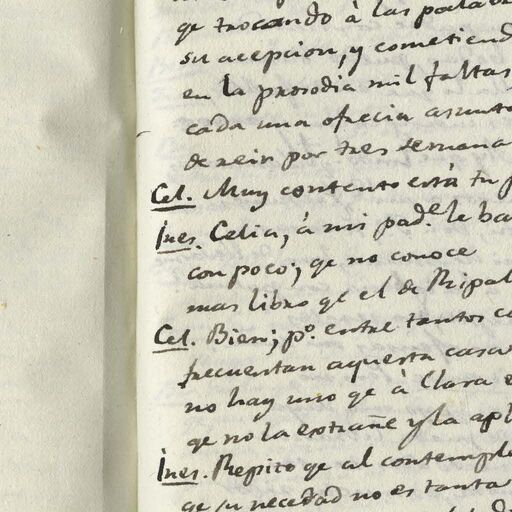 qe trocando à las palab
su acepcion, y cometiend
en la prosodia mil faltas
cada una ofrecia asunto
de reir por tres semana
Cel. Muy contento está tu p
Ines. Celia, á mi pad.e le ba
con poco; qe no conoce
mas libro qe el de Ripal
Cel. Bien; p.o entre tantos co
frecuentan aquesta casa
no hay uno qe à Clara e
qe no la extrañe y la apl
Ines. Repito qe al contempl
qe su necedad no es tanta